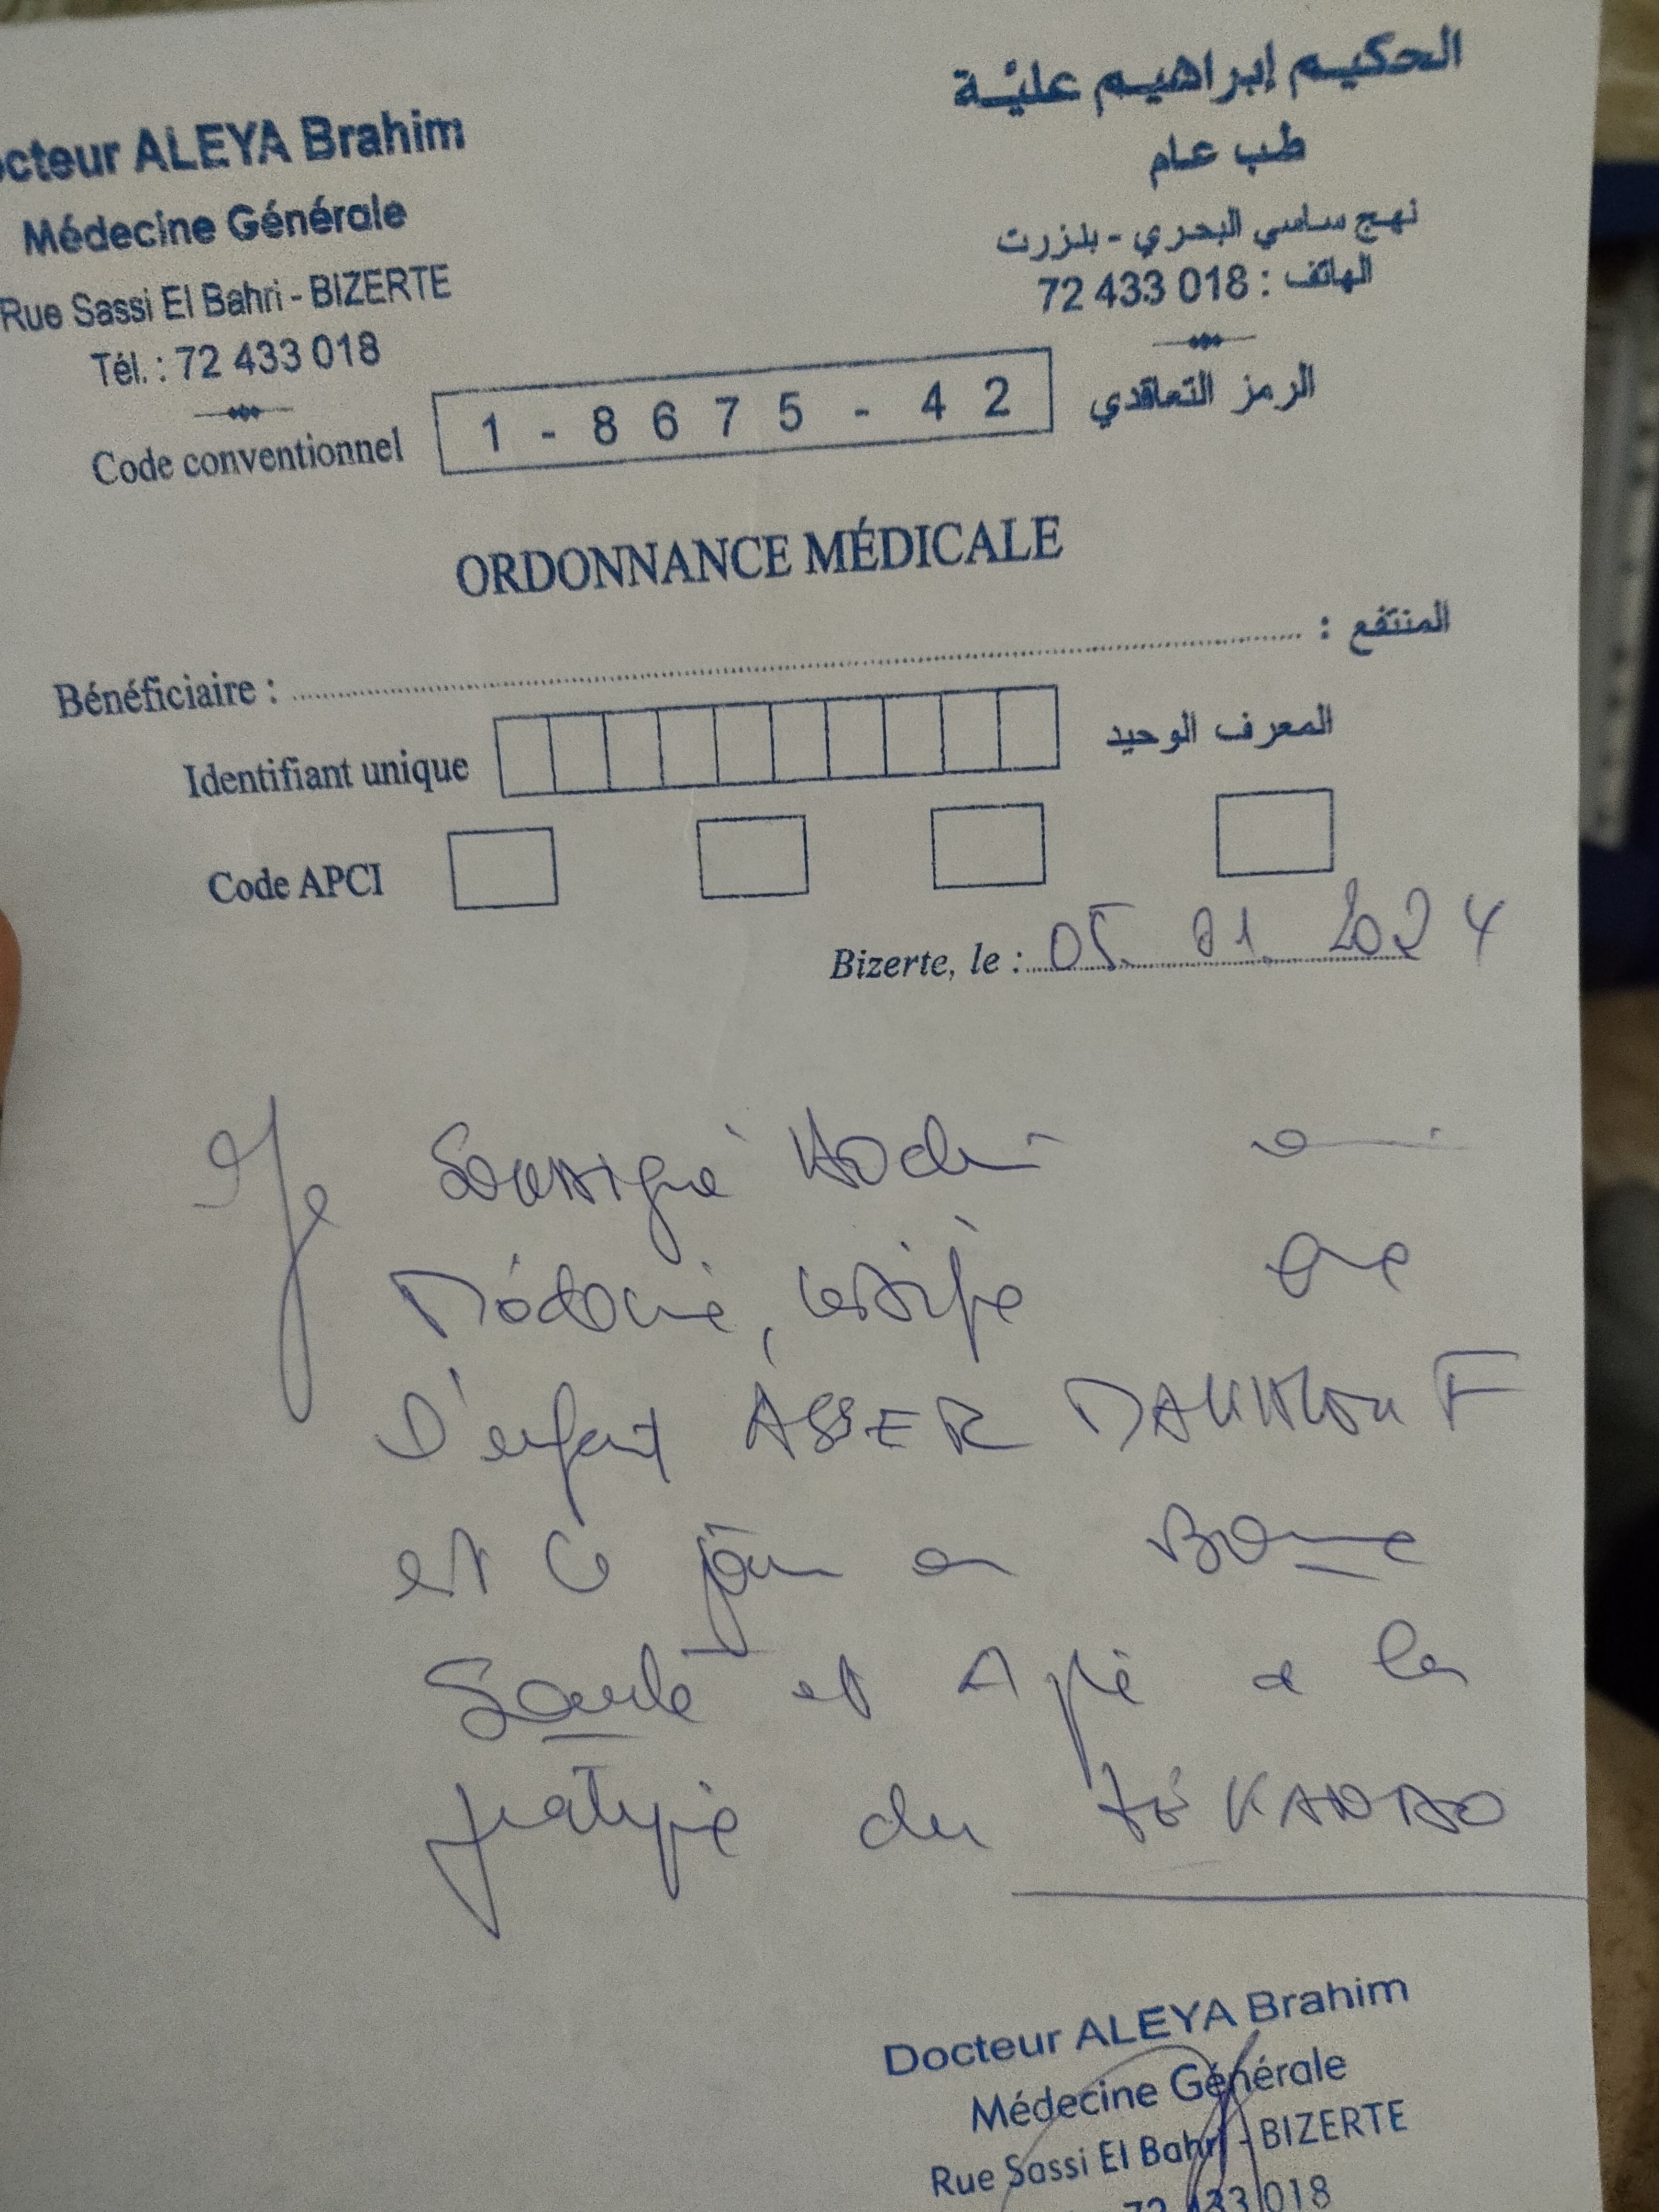 octeur ALEYA Brahim
Médecine Générale
Rue Sassi El Bahri - BIZERTE
Tél. : 72 433 018
الحكيم إبراهيم عليّة
طب عام
نهج ساسي البحري - بنزرت
الهاتف : 72 433 018
Code conventionnel 1 - 8675 - 42 الرمز التعاقدي
ORDONNANCE MÉDICALE
Bénéficiaire : المنتفع :
Identifiant unique المعرف الوحيد
Code APCI
Bizerte, le : 05. 01. 2024
Je Soussigné Docteur en
Médecine, certifie que
L'enfant ASSER
est ce jour en Bonne
Santé et Apte a la
pratique du
Docteur ALEYA Brahim
Médecine Générale
Rue Sassi El Bahri - BIZERTE
72 433 018